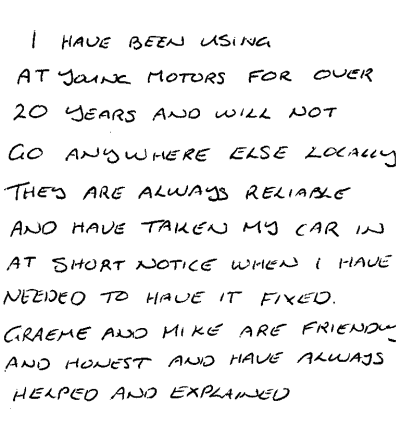 I HAVE BEEN USING
AT YOUNG MOTORS FOR OVER
20 YEARS AND WILL NOT
GO ANYWHERE ELSE LOCALLY
THEY ARE ALWAYS RELIABLE
AND HAVE TAKEN MY CAR IN
AT SHORT NOTICE WHEN I HAVE
NEEDED TO HAVE IT FIXED.
GRAEME AND MIKE ARE FRIENDLY
AND HONEST AND HAVE ALWAYS
HELPED AND EXPLAINED